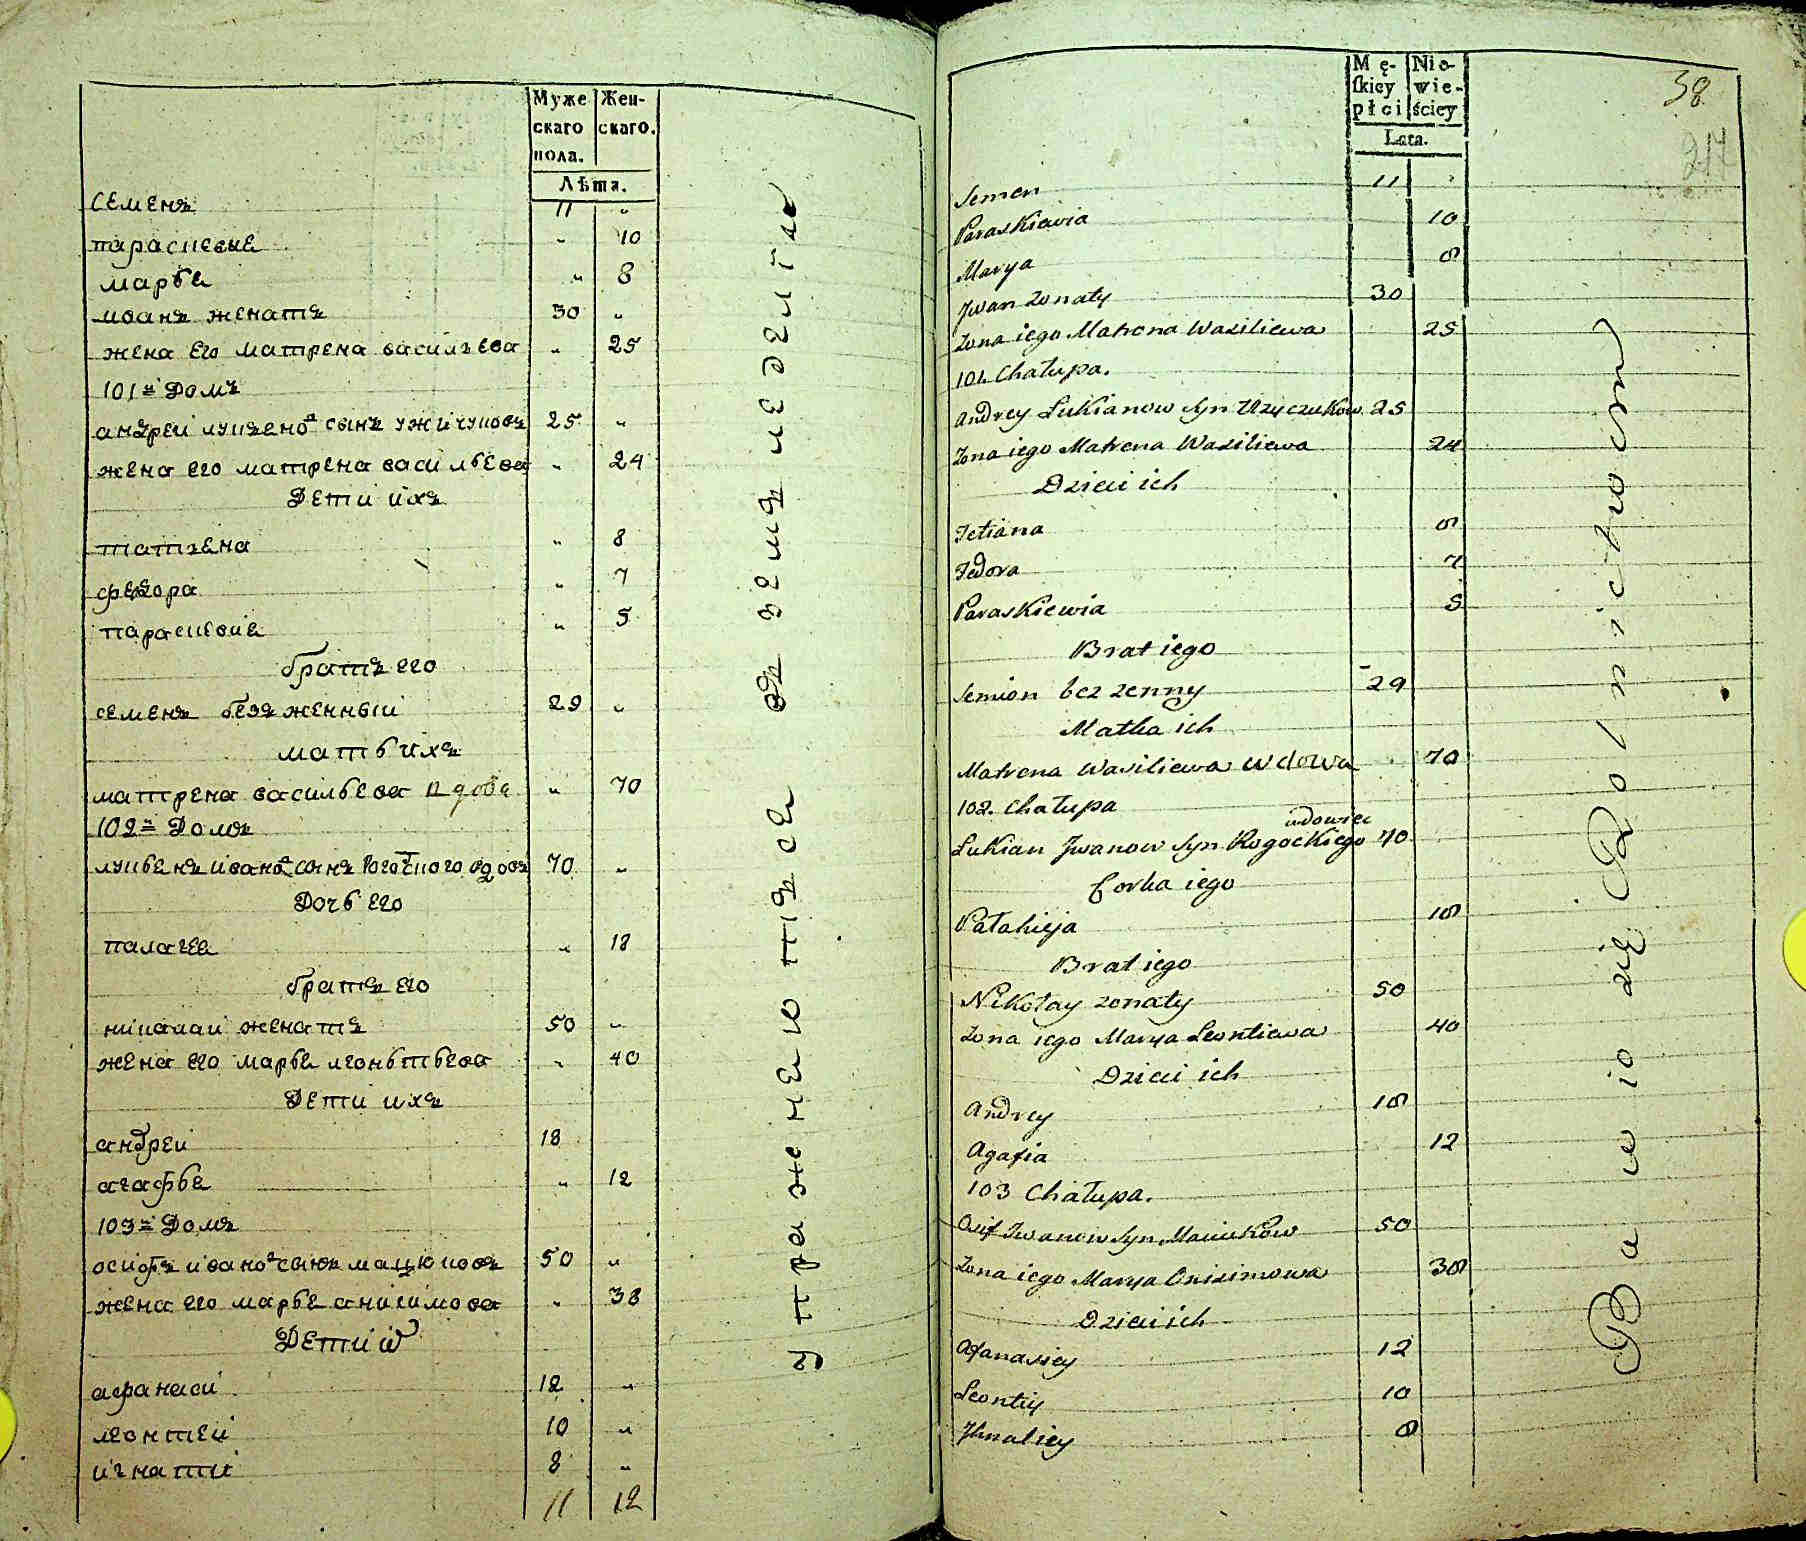 Муже
скаго
пола.
Жен-
скаго.
Лѣта.
семенъ 11 "
параскевия " 10
марья " 8
иванъ женатъ 30 "
жена его матрена васильева " 25
101й Домъ
андрей лукьяновъ сынъ ужичуковъ 25 "
жена его матрена васильева " 24
Дети ихъ
татіена " 8
федора " 7
параскевия " 5
братъ его
семенъ безженный 29 "
мать ихъ
матрена васильева вдова " 70
102й Домъ
лукьенъ ивановъ сынъ рогоцкого вдовъ 70 "
Дочь его
палагея " 18
братъ его
николаи женатъ 50 "
жена его марья леонтьева " 40
Дети ихъ
андреи 18
агафья " 12
103й Домъ
осифъ ивановъ сынъ мацюковъ 50 "
жена его марья анисимова " 38
Дети их
афанаси 12 "
леонтеи 10 "
игнати 8 "
11 12
упражнеются въ земледелїи
Mę-
skiey
płci
Nie-
wie-
ściey
Lata.
38
217
Semen 11
Paraskiewia 10
Marya 8
Jwan żonaty 30
Żona iego Matrona Wasiliewa 25
101. Chałupa.
Andrey Łukianow Syn Użyczukow 25
Żona iego Matrena Wasiliewa 24
Dzieci ich
Tetiana 8
Fedora 7
Paraskiewia 5
Brat iego
Semion bezżenny 29
Matka ich
Matrena Wasiliewa wdowa 70
102. Chałupa
wdowiec
Łukian Jwanow Syn Rogockiego 70
Corka iego
Pałahija 18
Brat iego
Nikołay żonaty 50
Żona iego Marya Leontiewa 40
Dzieci ich
Andrey 18
Agafia 12
103 Chałupa.
Osif Jwanow Syn Maciukow 50
Żona iego Marya Onisimowa 38
Dzieci ich
Afanasiey 12
Leontiy 10
Jhnatiey 8
Bawio się Rolnictwem